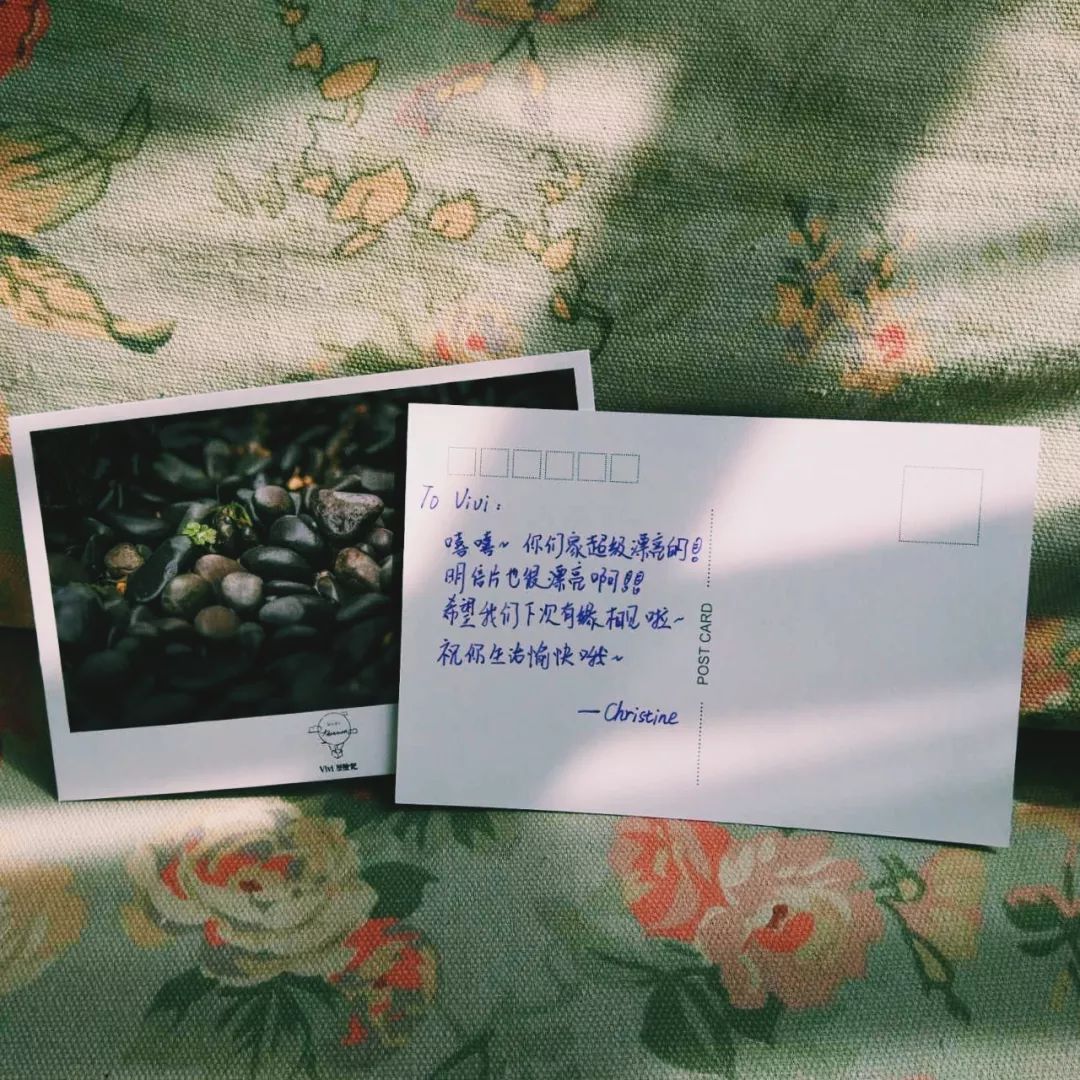 To Vivi:
嘻嘻~ 你们家超级漂亮的!!
明信片也很漂亮啊!!!
希望我们下次有缘相见啦~
祝你生活愉快哦~
—Christine
POST CARD
Vivi